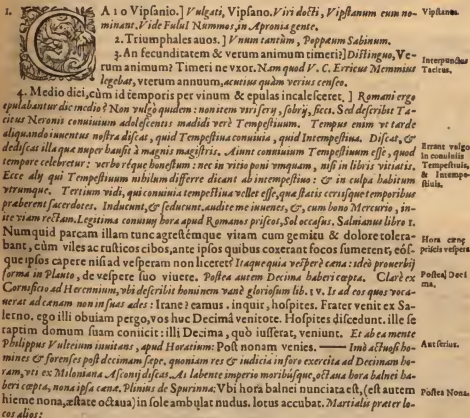 1. CAIO Vipsanio.] Vulgati, Vipsano. Viri docti, Vipstanum eum no-
minant. Vide Fului Nummos, in Apronia gente.
Vipstanus.
2. Triumphales auos.] Vnum tantùm, Poppæum Sabinum.
3. An fecunditatem & verum animum timeri?] Distinguo, Ve-
rum animum? Timeri ne vxor. Nam quod V. C. Erricus Memmius
legebat, vterum annuum, acutius quàm verius censeo.
Interpunctus
Tacitus.
4. Medio diei, cùm id temporis per vinum & epulas incalesceret.] Romani ergo
epulabantur die medio? Non vulgo quidem: non item viri serij, sobrij, ficci. Sed describit Ta-
citus Neronis conuiuium adolescentis madidi verè Tempestiuum. Tempus enim vt tarde
aliquando iuuentus nostra discat, quid Tempestiua conuiuia, quid Intempestiua. Discat, &
dediscat illa quæ nuper hausit à magnis magistris. Aiunt conuiuium Tempestiuum esse, quod
tempore celebretur: verbo réque honestum: nec in vitio poni vmquam, nisi in libris vitiatis.
Ecce aly qui Tempestiuum nihilum differre dicant ab intempestiuo: & in culpa habitum
vtrumque. Tertium vidi, qui conuiuia tempestiua vellet esse, quæ statis crisisque temporibus
præberent sacerdotes. Inducunt, & seducunt. audite me iuuenes, &, cum bono Mercurio, in-
ite viam rectam. Legitima conuiuij hora apud Romanos priscos, Sol occasus. Saluianus libro 1.
Errant vulgo
in conuiuiis
Tempestiuis,
& Intempe-
stiuis.
Numquid parcam illam tunc agrestémque vitam cum gemitu & dolore tolera-
bant, cùm viles ac rusticos cibos, ante ipsos quibus coxerant focos sumerent, eós-
que ipsos capere nisi ad vesperam non liceret? Itaque quia vesperè cœna: ideo prouerbij
forma in Plauto, de vespere suo viuere. Postea autem Decima haberi cœpta. Clarè ex
Cornificio ad Herennium, vbi describit hominem vanè gloriosum lib. IV. Is ad eos quos voca-
uerat ad cœnam non in suas ædes: Irane? eamus. inquit, hospites. Frater venit ex Sa-
lerno. ego illi obuiam pergo, vos huc Decimâ venitote. Hospites discedunt. ille se
raptim domum suam conijcit: illi Decima, quò iusserat, veniunt. Et ab ea mente
Philippus Vulteium inuitans, apud Horatium: Post nonam venies. — Imò actuosi ho-
mines & forenses post decimam sæpe. quoniam res & iudicia in foro exercita ad Decimam ho-
ram, vti ex Miloniana Asconij discas. At labente imperio moribúsque, octaua hora balnei ha-
beri cœpta, nona ipsa cœna. Plinius de Spurinna: Vbi hora balnei nunciata est, (est autem
hieme nona, æstate octaua) in sole ambulat nudus. lotus accubat. Martialis præter lo-
cos alios:
Hora cœnæ
priscis vespera
Postea Deci
ma.
Aut serius.
Postea Nona